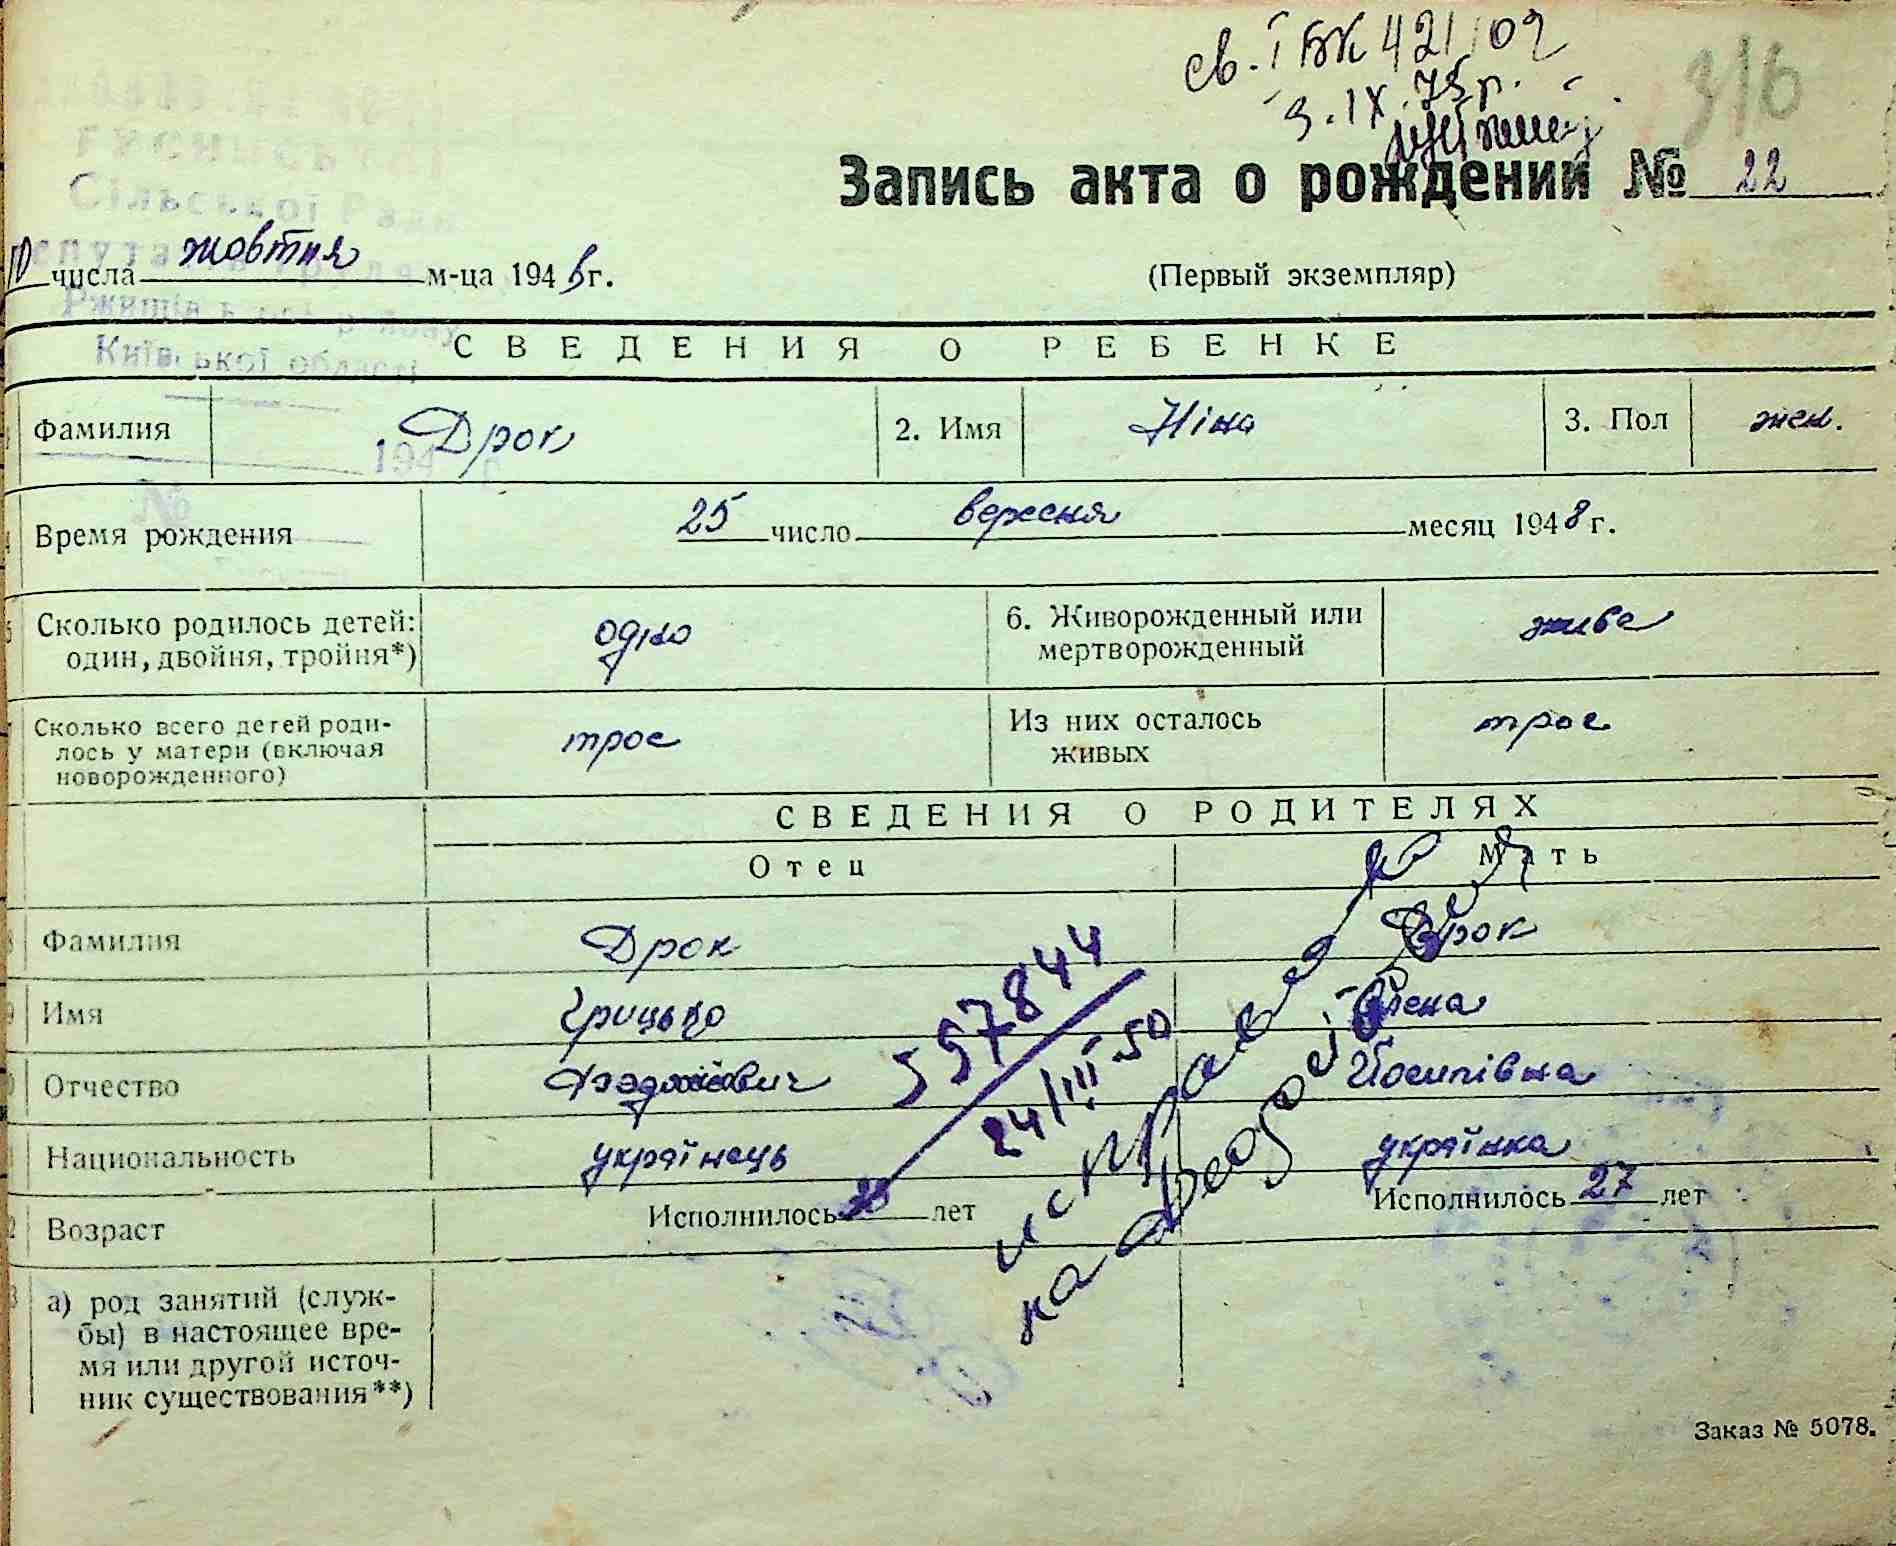 св. І БК 421109
3.IX.75р.
316
Запись акта о рождении № 22
Сільської Ради
10 числа жовтня м-ца 1948 г.
(Первый экземпляр)
Київської області
СВЕДЕНИЯ О РЕБЕНКЕ
Фамилия Дрок 2. Имя Ніна 3. Пол жен.
194
№
Время рождения 25 число вересня месяц 1948 г.
Сколько родилось детей: одно 6. Живорожденный или жива
один, двойня, тройня*) мертворожденный
Сколько всего детей роди- трое Из них осталось трое
лось у матери (включая живых
новорожденного)
СВЕДЕНИЯ О РОДИТЕЛЯХ
Отец Мать
Фамилия Дрок Дрок
Имя Грицько Олена
Отчество Йосипівна
Национальность українець українка
Возраст Исполнилось лет Исполнилось 27 лет
557844
24/III-50
исправлено
на Феодосійовича
а) род занятий (служ-
бы) в настоящее вре-
мя или другой источ-
ник существования**)
Заказ № 5078.